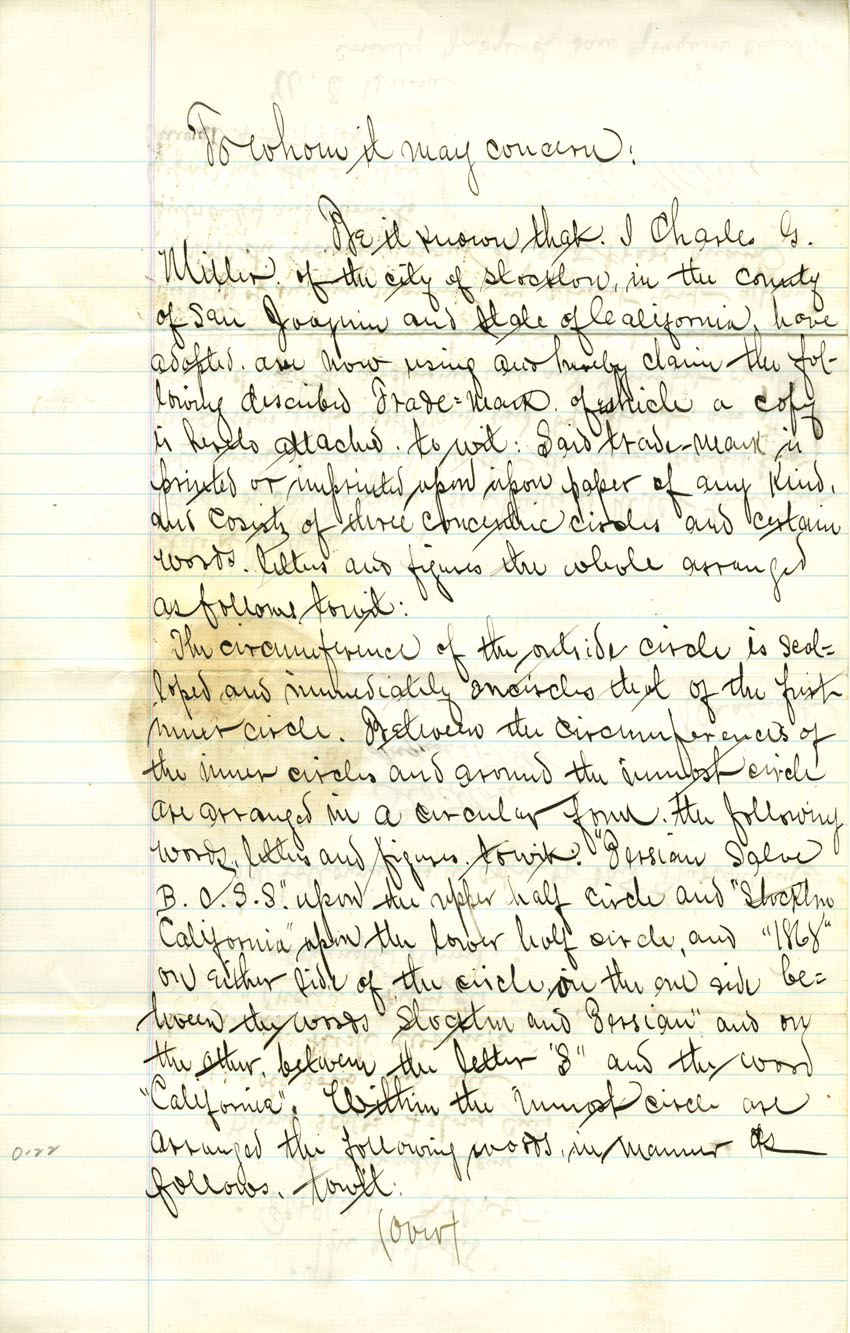 To whom it may concern:
Be it known that. I Charles G.
Miller. of the city of Stockton, in the county
of San Joaquin and State of Cealifornia, have
adopted. are now using and hereby claim the fol-
lowing described Trade=Mark. of which a copy
is hereto attached. to wit: Said trade-Mark is
printed or imprinted upon upon paper of any Kind,
and Cosists of three Concentric circles and certain
words. letters and figures the whole arranged
as follows towit:
The circumference of the outside circle is scol=
loped and immediately encircles that of the first
inner circle. Between the circumferences of
the inner circles and around the inmost circle
are arranged in a circular form. the following
words, letters and figures. towit. "Persian Salve
B. C. S. S". upon the upper half circle and "Stockton
California" upon the lower half circle, and "1868"
on either side of the circle, on the one side be=
tween the words "Stockton and Persian" and on
the other, between the letter "S" and the word
"California". Within the inmost circle are
arranged the following words, in manner as
follows, towit:
(Over)
0-22